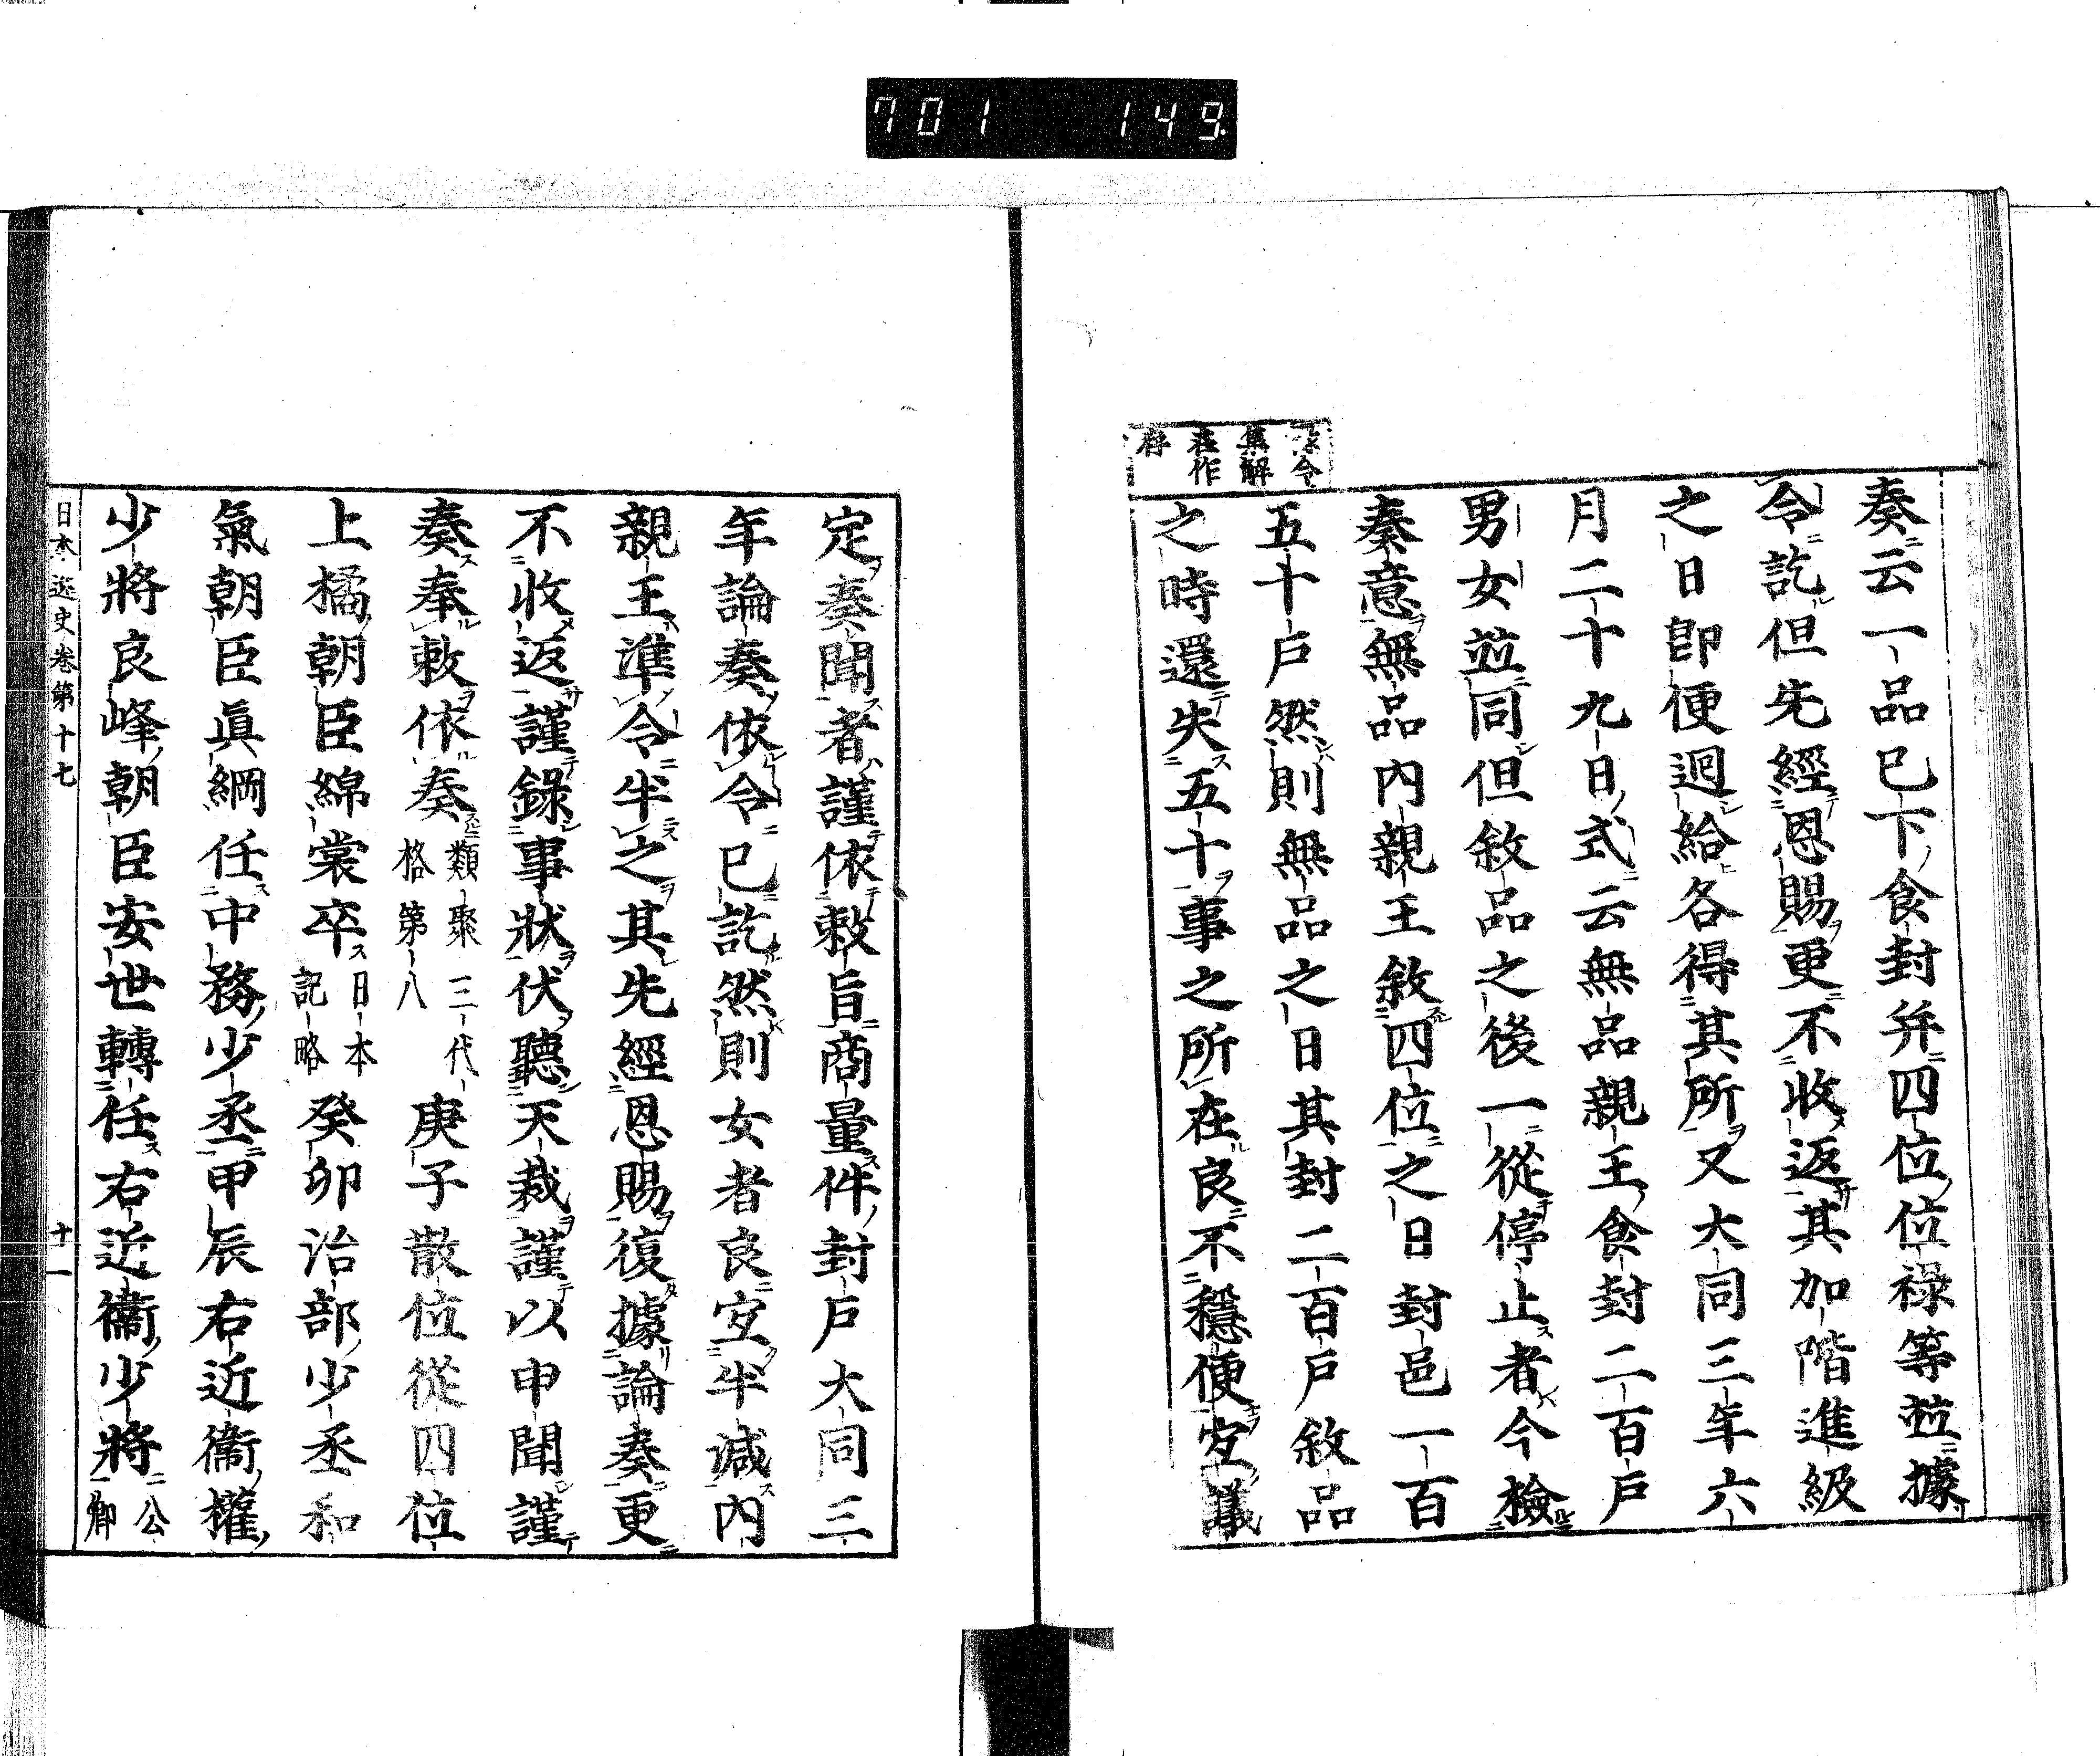 701 149
令
集解
在作
存
奏云一品已下食封并四位位祿等並據
令訖但先經恩賜更不收返其加階進級
之日卽便迴給各得其所又大同三年六
月二十九日式云無品親王食封二百戶
男女並同但敘品之後一從停止者今檢
奏意無品內親王敘四位之日封邑一百
五十戶然則無品之日其封二百戶敘品
之時還失五十事之所在良不穩便宜議
定奏聞者謹依敕旨商量件封戶大同三
年論奏依令已訖然則女者良宜半減內
親王準令半之其先經恩賜復據論奏更
不收返謹錄事狀伏聽天裁謹以申聞謹
奏奉敕依奏類聚三代格第八庚子散位從四位
上橘朝臣綿裳卒日本記略癸卯治部少丞和
氣朝臣眞綱任中務少丞甲辰右近衞權
少將良峰朝臣安世轉任右近衞少將公卿
日本逸史卷第十七 十一